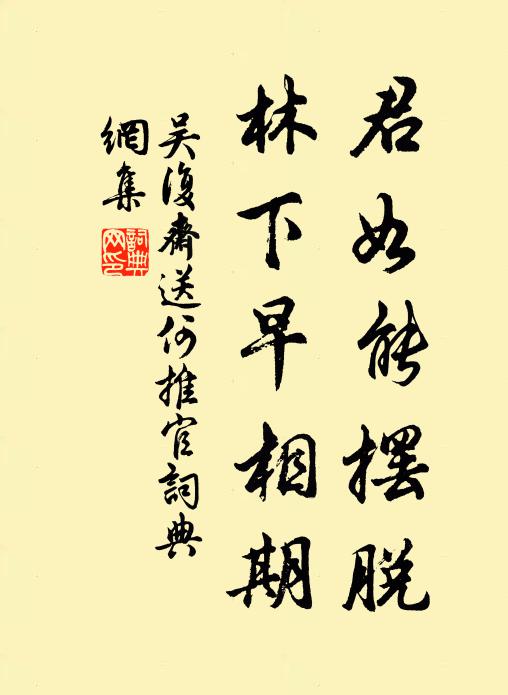 君如能摆脱
林下早相期
吴復斋送何推官詞典
網集
詞典
网印